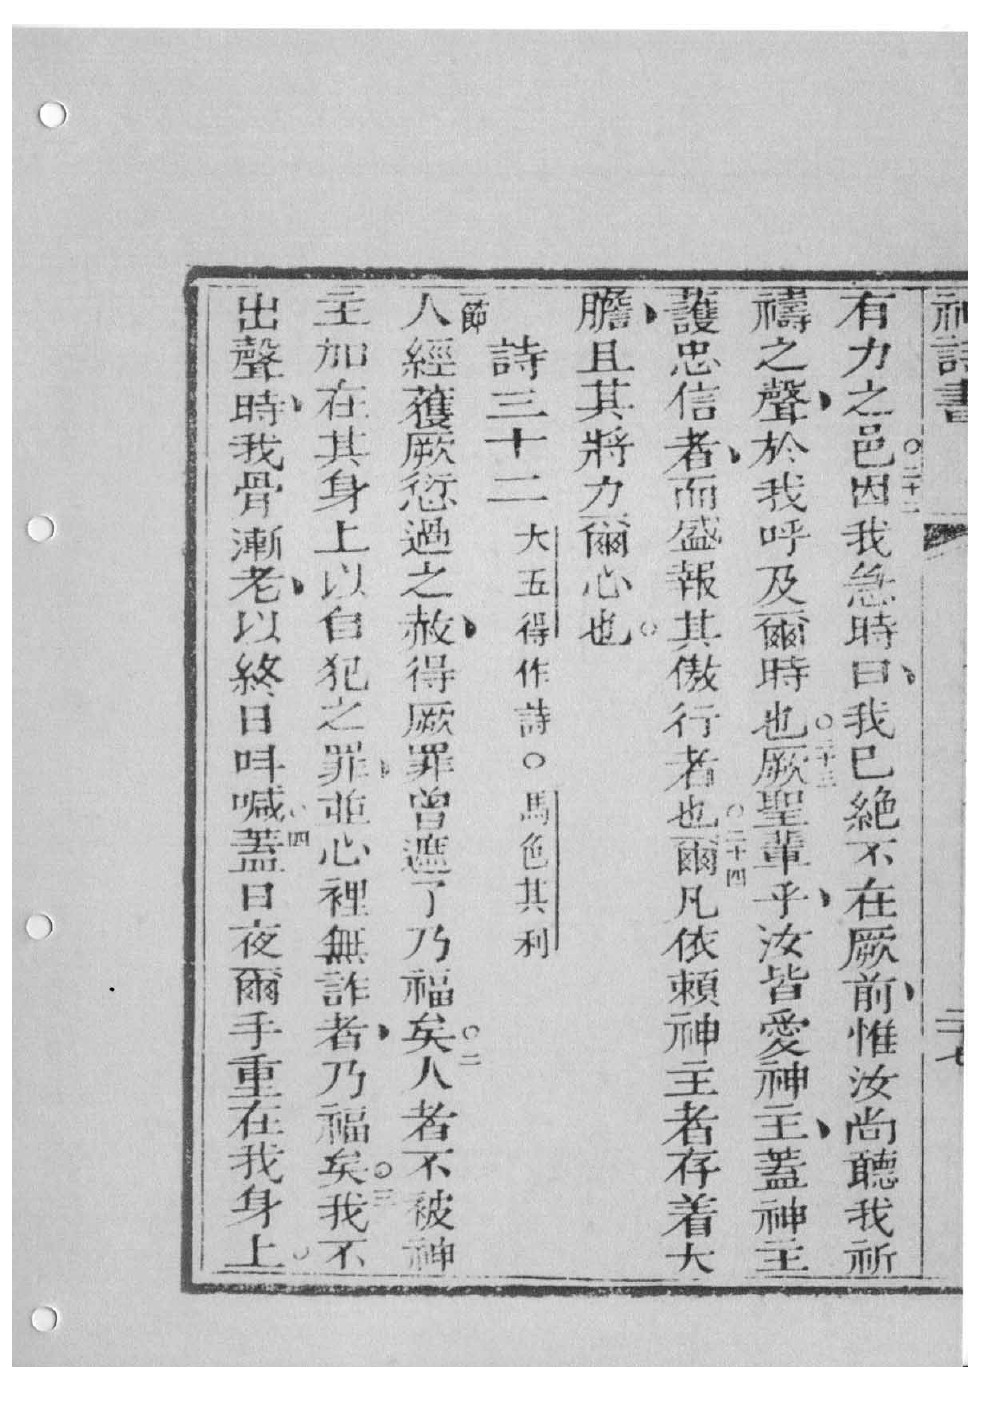 神詩書 二十七
有力之邑○二十二因我急時曰我已絕不在厥前惟汝尚聽我祈
禱之聲於我呼及爾時也○二十三厥聖輩乎汝皆愛神主蓋神主
護忠信者而盛報其傲行者也○二十四爾凡依賴神主者存着大
膽且其將力爾心也○
詩三十二 大五得作詩○馬色其利
一節人經獲厥愆過之赦得厥罪曾遮了乃福矣○二人者不被神
主加在其身上以自犯之罪並心裡無詐者乃福矣○三我不
出聲時我骨漸老以終日呌喊○四蓋日夜爾手重在我身上○